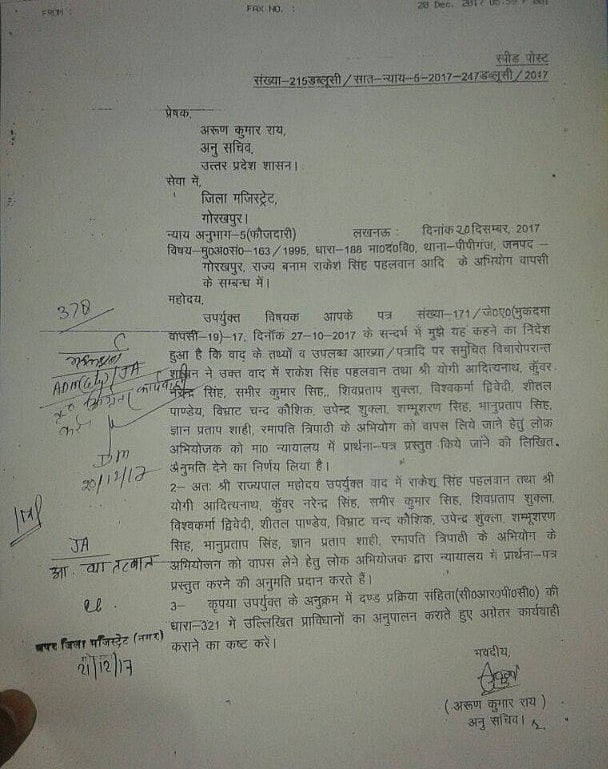 FROM :
FAX NO. :
20 Dec. 2017
स्पीड पोस्ट
संख्या–215डब्लूसी/सात–न्याय–5–2017–247डब्लूसी/2017
प्रेषक,
अरूण कुमार राय,
अनु सचिव,
उत्तर प्रदेश शासन।
सेवा में,
जिला मजिस्ट्रेट,
गोरखपुर।
न्याय अनुभाग–5(फौजदारी) लखनऊ : दिनांक 20 दिसम्बर, 2017
विषय–मु0अ0सं0–163/1995, धारा–188 भा0द0वि0, थाना–पीपीगंज, जनपद –
गोरखपुर, राज्य बनाम राकेश सिंह पहलवान आदि के अभियोग वापसी
के सम्बन्ध में।
महोदय,
उपर्युक्त विषयक आपके पत्र संख्या–171/जे0ए0(मुकदमा
वापसी–19)–17, दिनॉक 27–10–2017 के सन्दर्भ में मुझे यह कहने का निदेश
हुआ है कि वाद के तथ्यों व उपलब्ध आख्या/पत्रादि पर समुचित विचारोपरान्त
शासन ने उक्त वाद में राकेश सिंह पहलवान तथा श्री योगी आदित्यनाथ, कुॅवर
नरेन्द्र सिंह, समीर कुमार सिंह,, शिवप्रताप शुक्ला, विश्वकर्मा द्विवेदी, शीतल
पाण्डेय, विभ्राट चन्द कौशिक, उपेन्द्र शुक्ला, शम्भूशरण सिंह, भानुप्रताप सिंह,
ज्ञान प्रताप शाही, रमापति त्रिपाठी के अभियोग को वापस लिये जाने हेतु लोक
अभियोजक को मा0 न्यायालय में प्रार्थना–पत्र प्रस्तुत किये जाने की लिखित
अनुमति देने का निर्णय लिया है।
2– अतः श्री राज्यपाल महोदय उपर्युक्त वाद में राकेश सिंह पहलवान तथा श्री
योगी आदित्यनाथ, कुॅवर नरेन्द्र सिंह, समीर कुमार सिंह, शिवप्रताप शुक्ला,
विश्वकर्मा द्विवेदी, शीतल पाण्डेय, विभ्राट चन्द कौशिक, उपेन्द्र शुक्ला, शम्भूशरण
सिंह, भानुप्रताप सिंह, ज्ञान प्रताप शाही, रमापति त्रिपाठी के अभियोग के
अभियोजन को वापस लेने हेतु लोक अभियोजक द्वारा न्यायालय में प्रार्थना–पत्र
प्रस्तुत करने की अनुमति प्रदान करते हैं।
3– कृपया उपर्युक्त के अनुक्रम में दण्ड प्रक्रिया संहिता(सी0आर0पी0सी0) की
धारा–321 में उल्लिखित प्राविधानों का अनुपालन कराते हुए अग्रेतर कार्यवाही
कराने का कष्ट करें।
378
ADM(City)/JA
DM
20/12/17
JA
आ. व्या तत्काल
अपर जिला मजिस्ट्रेट (नगर)
21/12/17
भवदीय,
(अरूण कुमार राय)
अनु सचिव।